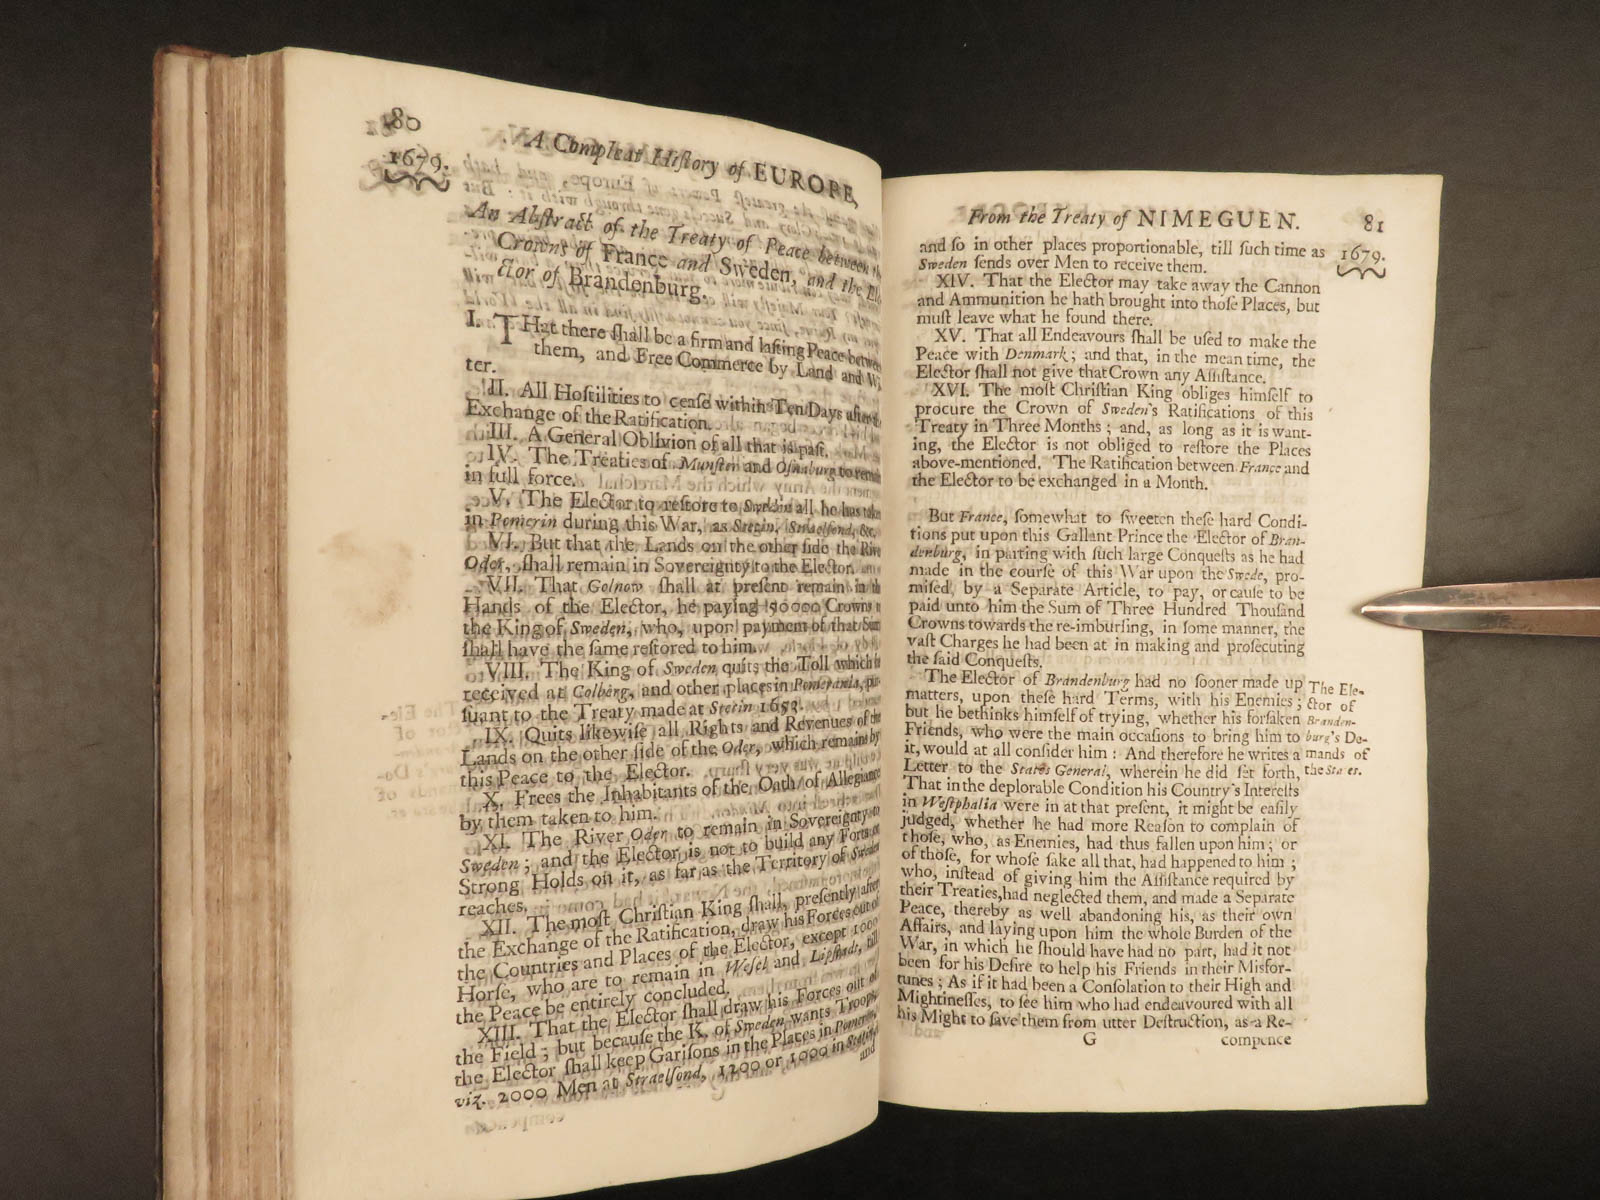 80
1679.
A Compleat Hiſtory of EUROPE,
An Abſtract of the Treaty of Peace between
Crowns of France and Sweden, and the
ctor of Brandenburg.
I. THat there ſhall be a firm and laſting Peace
them, and Free Commerce by Land and
ter.
II. All Hoſtilities to ceaſe within Ten Days after
Exchange of the Ratification.
III. A General Oblivion of all that is paſt.
IV. The Treaties of Munſter and Oſnaburg to
in full force.
V. The Elector to reſtore to Sweden all he has
in Pomerin during this War, as Stetin, Straelſond, &c.
VI. But that the Lands on the other ſide the
Oder, ſhall remain in Sovereignty to the Elector.
VII. That Golnow ſhall at preſent remain in
Hands of the Elector, he paying 50000 Crowns
the King of Sweden, who, upon payment of that Sum
ſhall have the ſame reſtored to him.
VIII. The King of Sweden quits the Toll which
received at Colberg, and other places in Pomerania,
ſuant to the Treaty made at Stetin 1653.
IX. Quits likewiſe all Rights and Revenues of the
Lands on the other ſide of the Oder, which remains by
this Peace to the Elector.
X. Frees the Inhabitants of the Oath of Allegiance
by them taken to him.
XI. The River Oder to remain in Sovereignty to
Sweden; and the Elector is not to build any Forts or
Strong Holds on it, as far as the Territory of Sweden
reaches.
XII. The moſt Chriſtian King ſhall, preſently after
the Exchange of the Ratification, draw his Forces out of
the Countries and Places of the Elector, except 1000
Horſe, who are to remain in Weſel and Lipſtadt, till
the Peace be entirely concluded.
XIII. That the Elector ſhall draw his Forces out of
the Field; but becauſe the K. of Sweden wants Troops
the Elector ſhall keep Gariſons in the Places in Pomerin,
viz. 2000 Men at Straelſond, 1200 or 1000 in
and
From the Treaty of NIMEGUEN.
81
1679.
and ſo in other places proportionable, till ſuch time as
Sweden ſends over Men to receive them.
XIV. That the Elector may take away the Cannon
and Ammunition he hath brought into thoſe Places, but
muſt leave what he found there.
XV. That all Endeavours ſhall be uſed to make the
Peace with Denmark; and that, in the mean time, the
Elector ſhall not give that Crown any Aſſiſtance.
XVI. The moſt Chriſtian King obliges himſelf to
procure the Crown of Sweden's Ratifications of this
Treaty in Three Months; and, as long as it is want-
ing, the Elector is not obliged to reſtore the Places
above-mentioned. The Ratification between France and
the Elector to be exchanged in a Month.
But France, ſomewhat to ſweeten theſe hard Condi-
tions put upon this Gallant Prince the Elector of Bran-
denburg, in parting with ſuch large Conqueſts as he had
made in the courſe of this War upon the Swede, pro-
miſed, by a Separate Article, to pay, or cauſe to be
paid unto him the Sum of Three Hundred Thouſand
Crowns towards the re-imburſing, in ſome manner, the
vaſt Charges he had been at in making and proſecuting
the ſaid Conqueſts.
The Elector of Brandenburg had no ſooner made up
matters, upon theſe hard Terms, with his Enemies;
but he bethinks himſelf of trying, whether his forſaken
Friends, who were the main occaſions to bring him to
it, would at all conſider him: And therefore he writes a
Letter to the States General, wherein he did ſet forth,
That in the deplorable Condition his Country's Intereſts
in Weſtphalia were in at that preſent, it might be eaſily
judged, whether he had more Reaſon to complain of
thoſe, who, as Enemies, had thus fallen upon him; or
of thoſe, for whoſe ſake all that, had happened to him;
who, inſtead of giving him the Aſſiſtance required by
their Treaties, had neglected them, and made a Separate
Peace, thereby as well abandoning his, as their own
Affairs, and laying upon him the whole Burden of the
War, in which he ſhould have had no part, had it not
been for his Deſire to help his Friends in their Misfor-
tunes; As if it had been a Conſolation to their High and
Mightineſſes, to ſee him who had endeavoured with all
his Might to ſave them from utter Deſtruction, as a Re-
G
compence
The Ele-
ctor of
Branden-
burg's De-
mands of
the States.